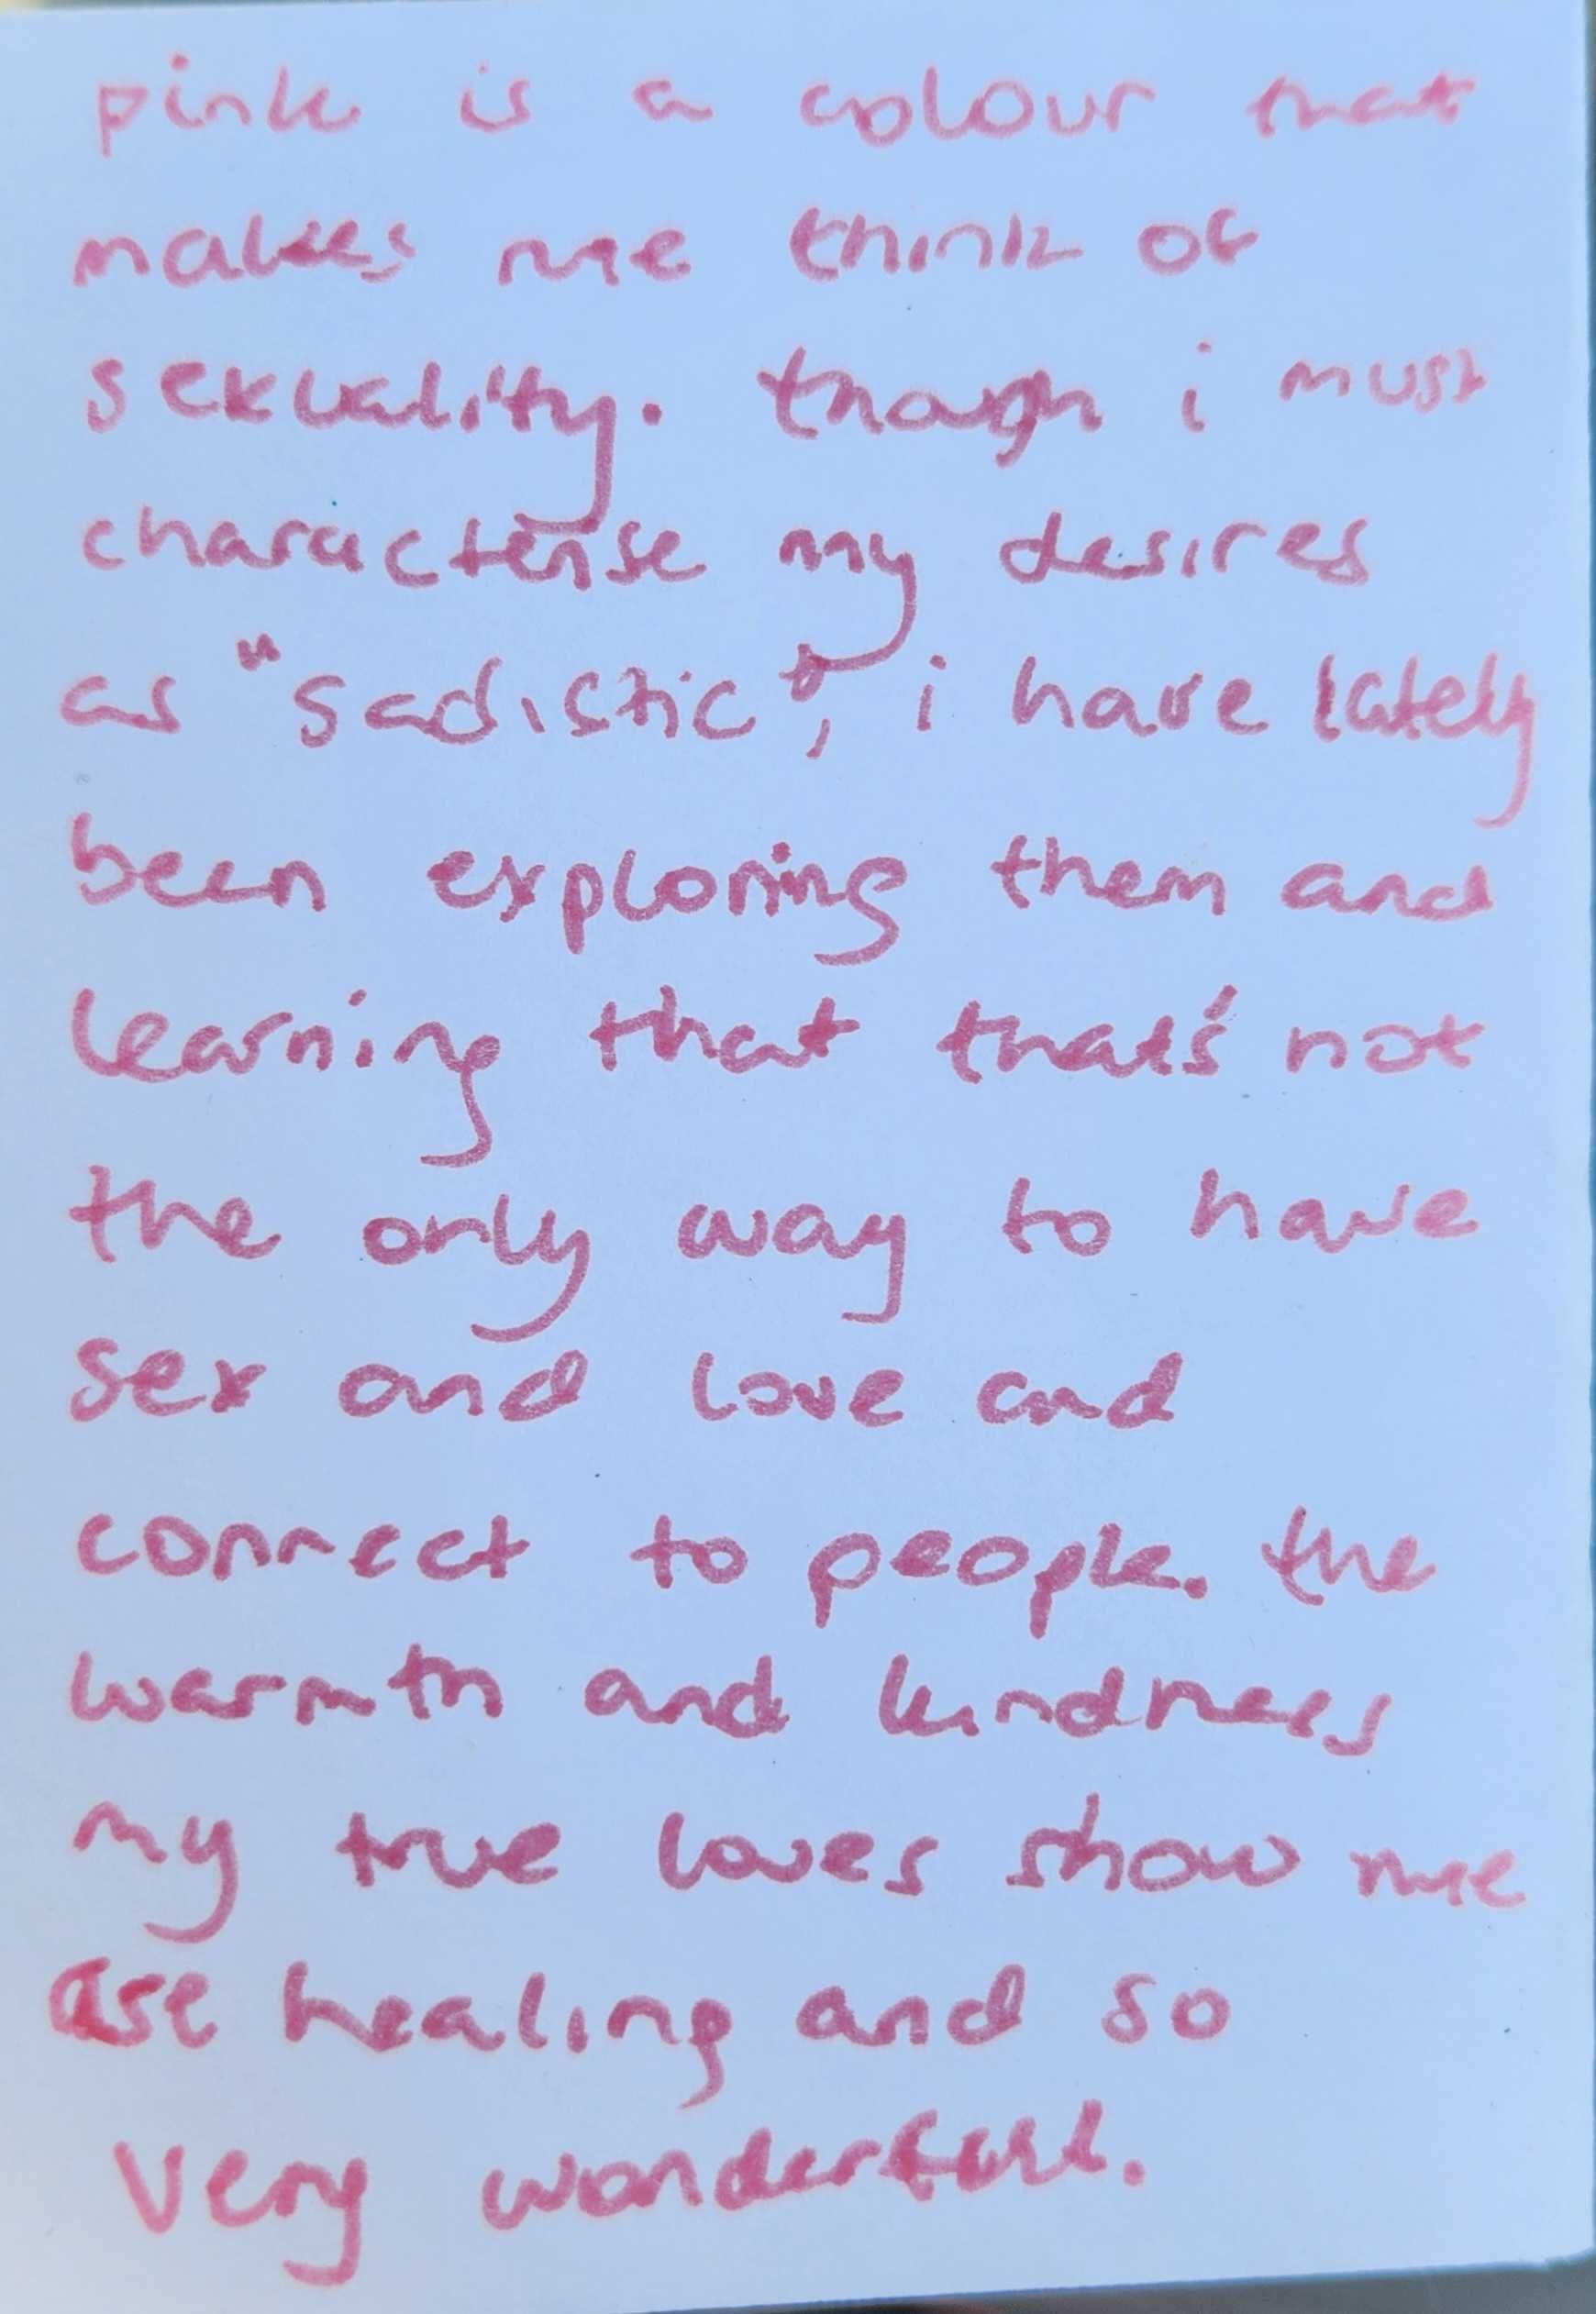 pink is a colour that
makes me think of
sexuality. though i must
characterise my desires
as "sadistic", i have lately
been exploring them and
learning that that's not
the only way to have
sex and love and
connect to people. the
warmth and kindness
my true loves show me
are healing and so
very wonderful.